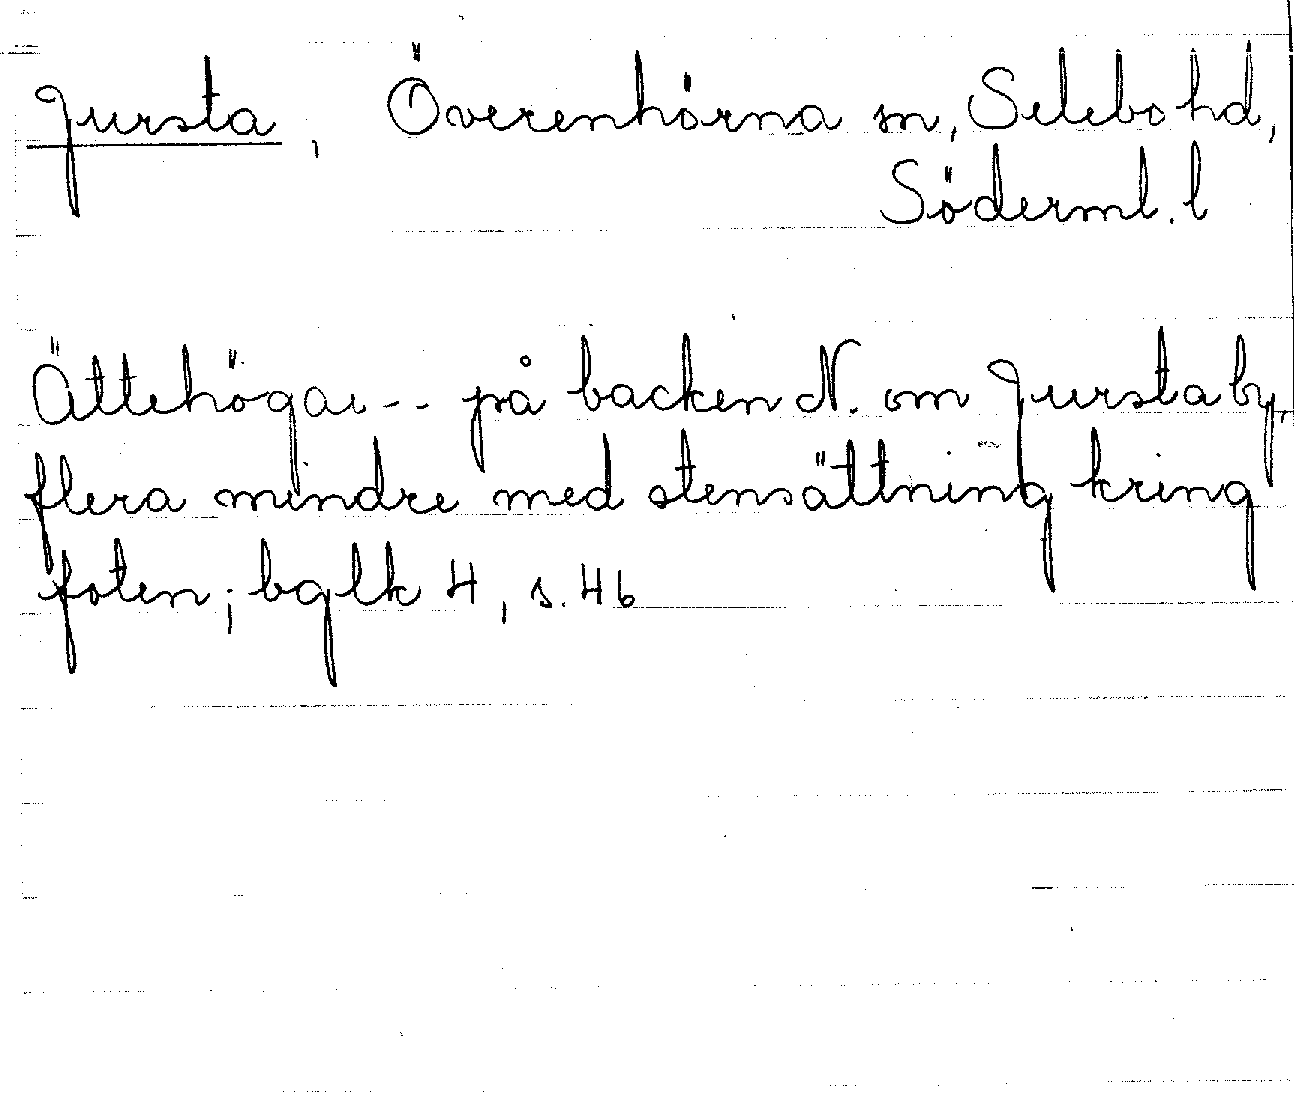 Jursta, Överenhörna sn, Selebo hd,
Söderml. l
Ättehögar -- på backen N. om Jursta by,
flera mindre med stensättning kring
foten; bglk 4, s. 46